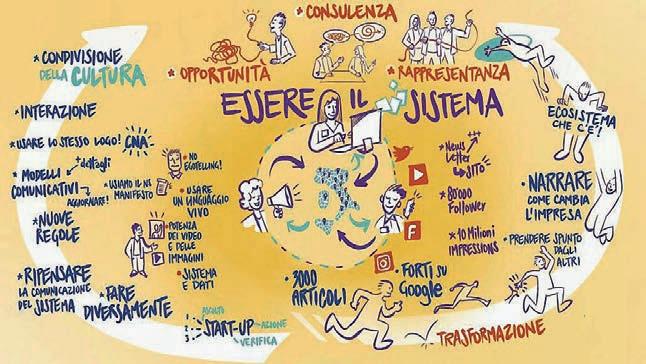 * CONSULENZA
* OPPORTUNITÀ
* RAPPRESENTANZA
* CONDIVISIONE
DELLA CULTURA
ESSERE IL SISTEMA
ECOSISTEMA
CHE C'È!
* INTERAZIONE
* USARE LO STESSO LOGO! CNA
* MODELLI
COMUNICATIVI
+ dettagli
AGGIORNARE!
* USIAMO IL NS
MANIFESTO
* NUOVE
REGOLE
* RIPENSARE
LA COMUNICAZIONE
DEL SISTEMA
* FARE
DIVERSAMENTE
* NO
EGOTELLING!
* USARE
UN LINGUAGGIO
VIVO
* POTENZA
DEI VIDEO
E DELLE
IMMAGINI
* SISTEMA
E DATI
ASCOLTO
START-UP
AZIONE
VERIFICA
* News
Letter
SITO
* 80'000
Follower
* 10 Milioni
IMPRESSIONS
F
* 3000
ARTICOLI
* FORTI SU
Google
* NARRARE
COME CAMBIA
L'IMPRESA
* PRENDERE SPUNTO
DAGLI
ALTRI
TRASFORMAZIONE